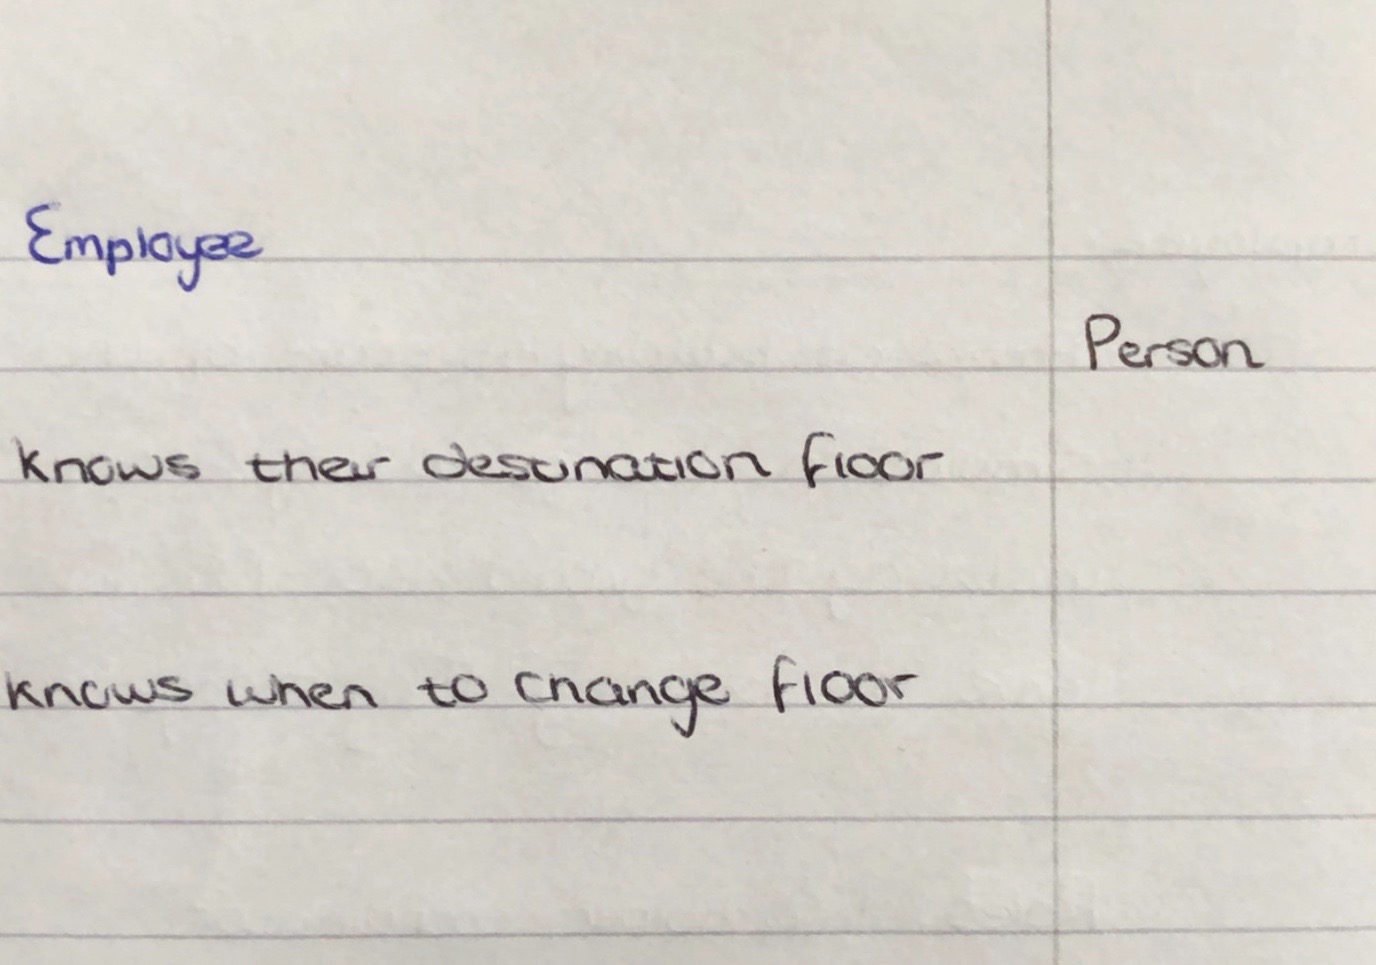 Employee
Person
knows their destination floor
knows when to change floor